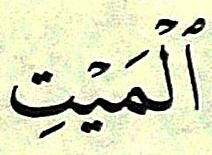 ٱلْمَيْتِ